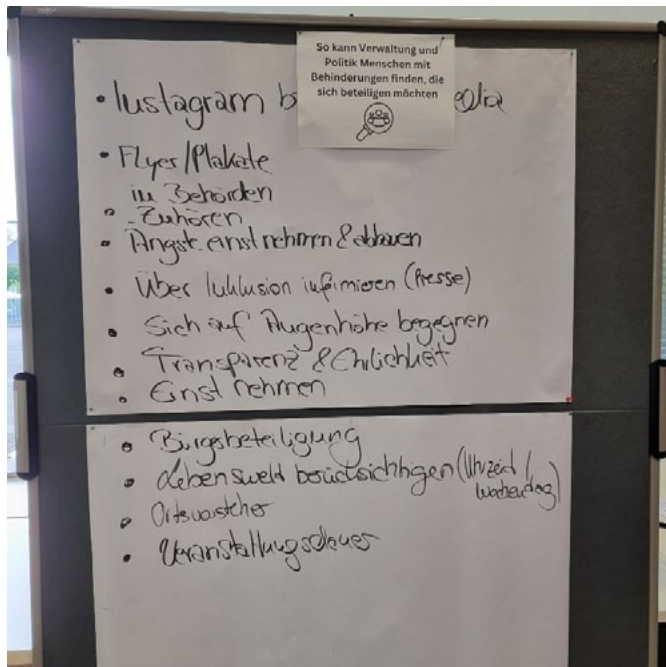 So kann Verwaltung und
Politik Menschen mit
Behinderungen finden, die
sich beteiligen möchten
• Instagram
• Flyer/Plakate
in Behörden
• Zuhören
• Ängste ernst nehmen & abbauen
• Über Inklusion informieren (Presse)
• Sich auf Augenhöhe begegnen
• Transparenz & Ehrlichkeit
• Ernst nehmen
• Bürgsbeteiligung
• Lebenswelt berücksichtigen (Uhrzeit /
Wochentag)
• Ortsvorsteher
• Veranstaltungsdauer